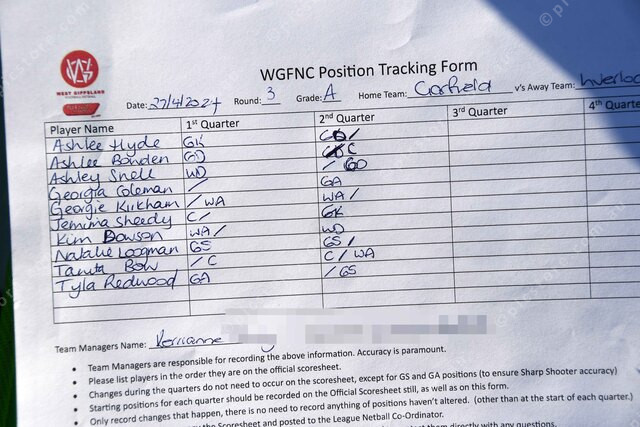 WGFNC Position Tracking Form
WEST GIPPSLAND
Date: 27/4/2024 Round: 3 Grade: A Home Team: Garfield v's Away Team: Inverloc
Player Name 1st Quarter 2nd Quarter 3rd Quarter 4th Quarte
Ashlee Hyde GK /
Ashlee Bonden GD C
Ashley Snell WD / GD
Georgia Coleman / GA
Georgie Kirkham / WA WA /
Jemima Sheedy C / GK
Kim Dowson WA / WD
Natalie Loogman GS GS /
Tanita Bow / C C / WA
Tyla Redwood GA / GS
Team Managers Name:
• Team Managers are responsible for recording the above information. Accuracy is paramount.
• Please list players in the order they are on the official scoresheet.
• Changes during the quarters do not need to occur on the scoresheet, except for GS and GA positions (to ensure Sharp Shooter accuracy)
• Starting positions for each quarter should be recorded on the Official Scoresheet still, as well as on this form.
• Only record changes that happen, there is no need to record anything of positions haven't altered. (other than at the start of each quarter.)
the Scoresheet and posted to the League Netball Co-Ordinator.
them directly with any questions.